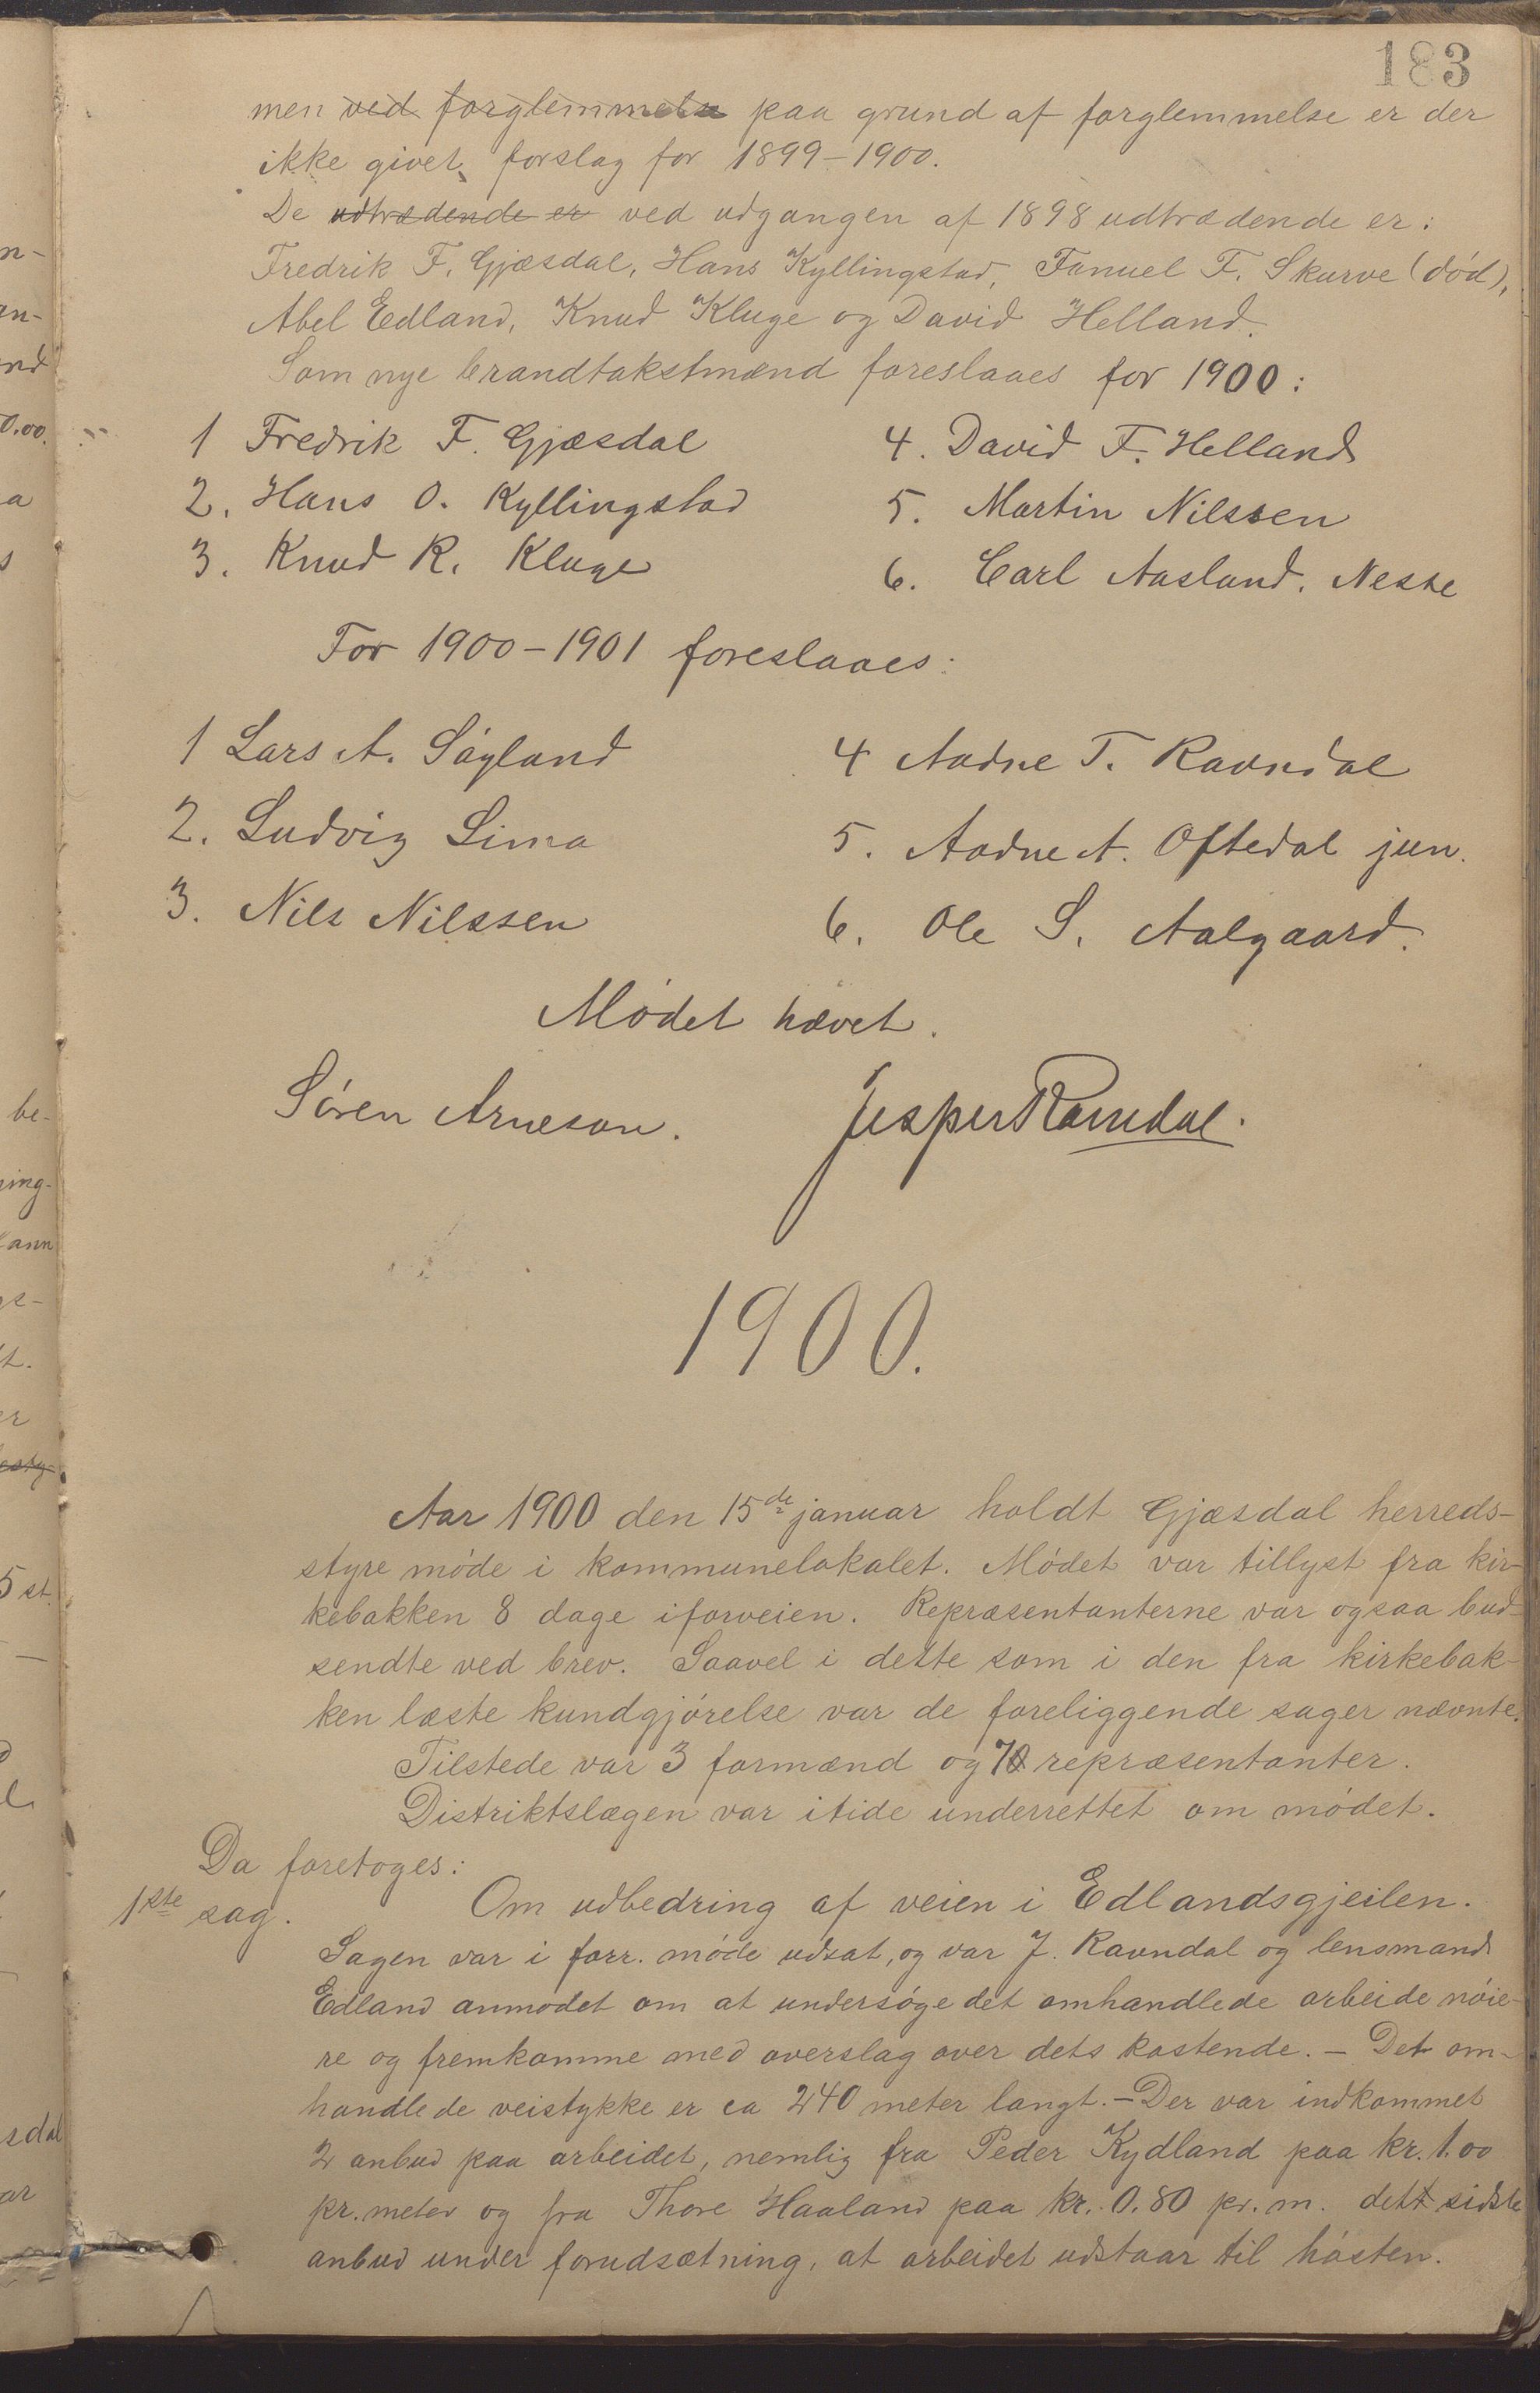 183
men ved forglemmelse paa grund af forglemmelse er der
ikke givet forslag for 1899-1900.
De udtrædende er ved udgangen af 1898 udtrædende er:
Fredrik F. Gjæsdal, Hans Kyllingstad, Fanuel F. Skurve (død),
Abel Edland, Knud Kluge og David Helland.
Som nye brandtakstmænd foreslaaes for 1900:
1 Fredrik F. Gjæsdal
2. Hans O. Kyllingstad
3. Knud R. Kluge
4. David F. Helland
5. Martin Nilssen
6. Carl Aasland. Neste
For 1900-1901 foreslaaes:
1 Lars A. Søyland
2. Ludvig Lima
3. Nils Nilssen
4 Aadne T. Ravndal
5. Aadne A. Oftedal jun.
6. Ole S. Aalgaard.
Mødet hævet.
Søren Arneson.
Jesper Ravndal.
1900.
Aar 1900 den 15de januar holdt Gjæsdal herreds-
styre møde i kommunelokalet. Mødet var tillyst fra kir-
kebakken 8 dage iforveien. Repræsentanterne var ogsaa bud-
sendte ved brev. Saavel i dette som i den fra kirkebak-
ken læste kundgjørelse var de foreliggende sager nævnte.
Tilstede var 3 formænd og 7 repræsentanter.
Distriktslægen var itide underrettet om mødet.
Da foretoges:
1ste sag.
Om udbedring af veien i Edlandsgjeilen.
Sagen var i forr. møde udsat, og var J. Ravndal og lensmand
Edland anmodet om at undersøge det omhandlede arbeide nøie-
re og fremkomme med overslag over dets kostende. - Det om-
handlede veistykke er ca 240 meter langt. - Der var indkommet
2 anbud paa arbeidet, nemlig fra Peder Kydland paa kr. 1.00
pr. meter og fra Thore Haaland paa kr. 0.80 pr. m. det sidste
anbud under forudsætning, at arbeidet udstaar til høsten.